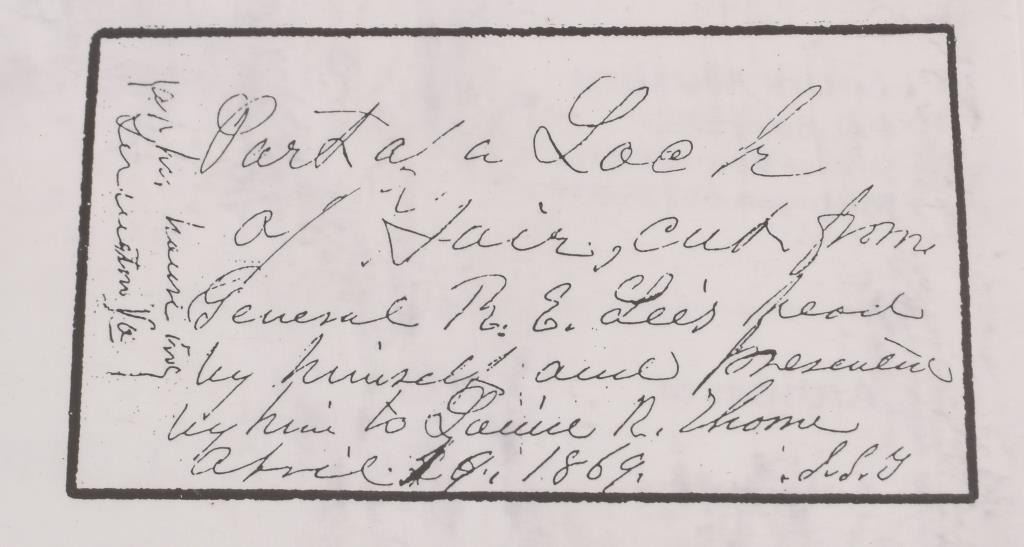 Part of a Lock
of Hair, cut from
General R. E. Lee's head
by himself and presented
by him to R. Thome
April 19. 1869. S.S.T
his house in
Lexington Va